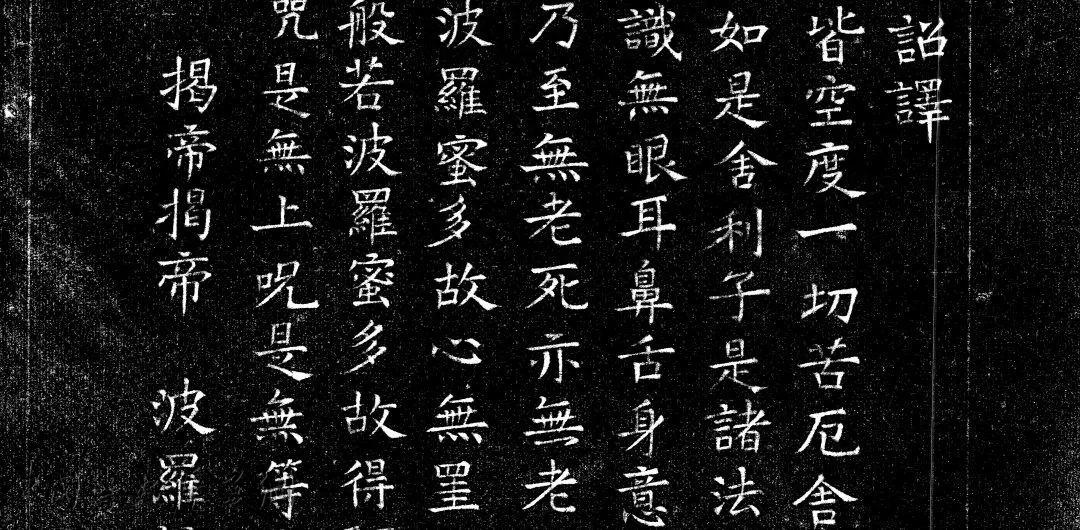 詔譯
皆空度一切苦厄舍
如是舍利子是諸法
識無眼耳鼻舌身意
乃至無老死亦無老
波羅蜜多故心無罣
般若波羅蜜多故得
咒是無上呪是無等
揭帝揭帝 波羅